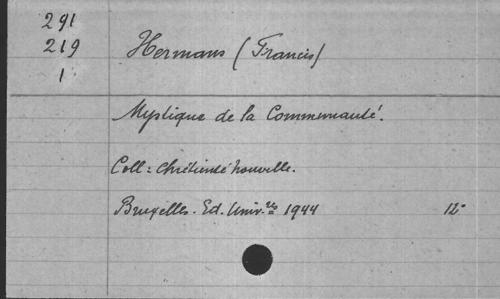 291
219
1
Hermans (Francis)
Mystique de la Communauté.
Coll: Chrétienté Nouvelle.
Bruxelles. Ed. Univ.res 1944 12°